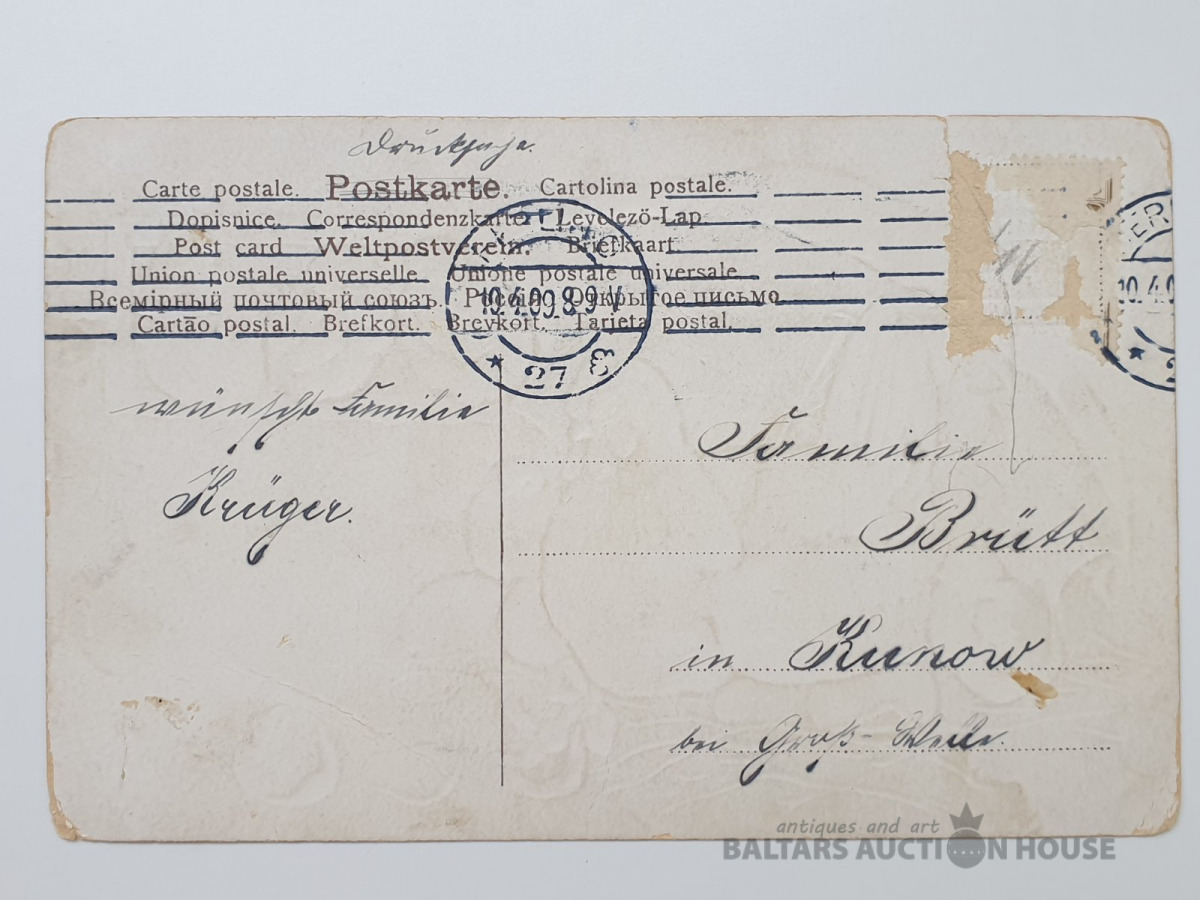 Drucksache.
Carte postale. Postkarte. Cartolina postale.
Dopisnice. Correspondenzkarte. Levelező-Lap.
Post card Weltpostverein. Briefkaart
Union postale universelle. Unione postale universale.
Всемірный почтовый союзъ. Россія. Открытое письмо.
Cartão postal. Brefkort. Brevkort. Tarjeta postal.
10.4.09.8-9 V
* 27
10.4.0
wünscht Familie
Krüger.
Familie
Brütt
in Kunow
bei Groß-Welle.
antiques and art
BALTARS AUCTION HOUSE